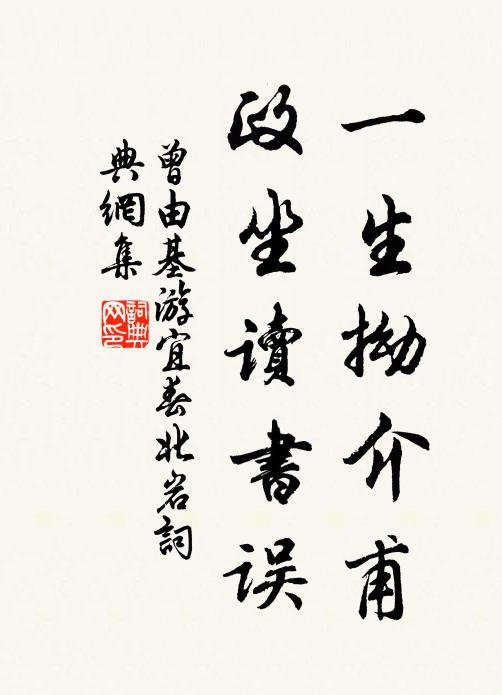 一生拗介甫
政坐讀書误
曾由基游宜春北岩詞
典網集
詞典
网印